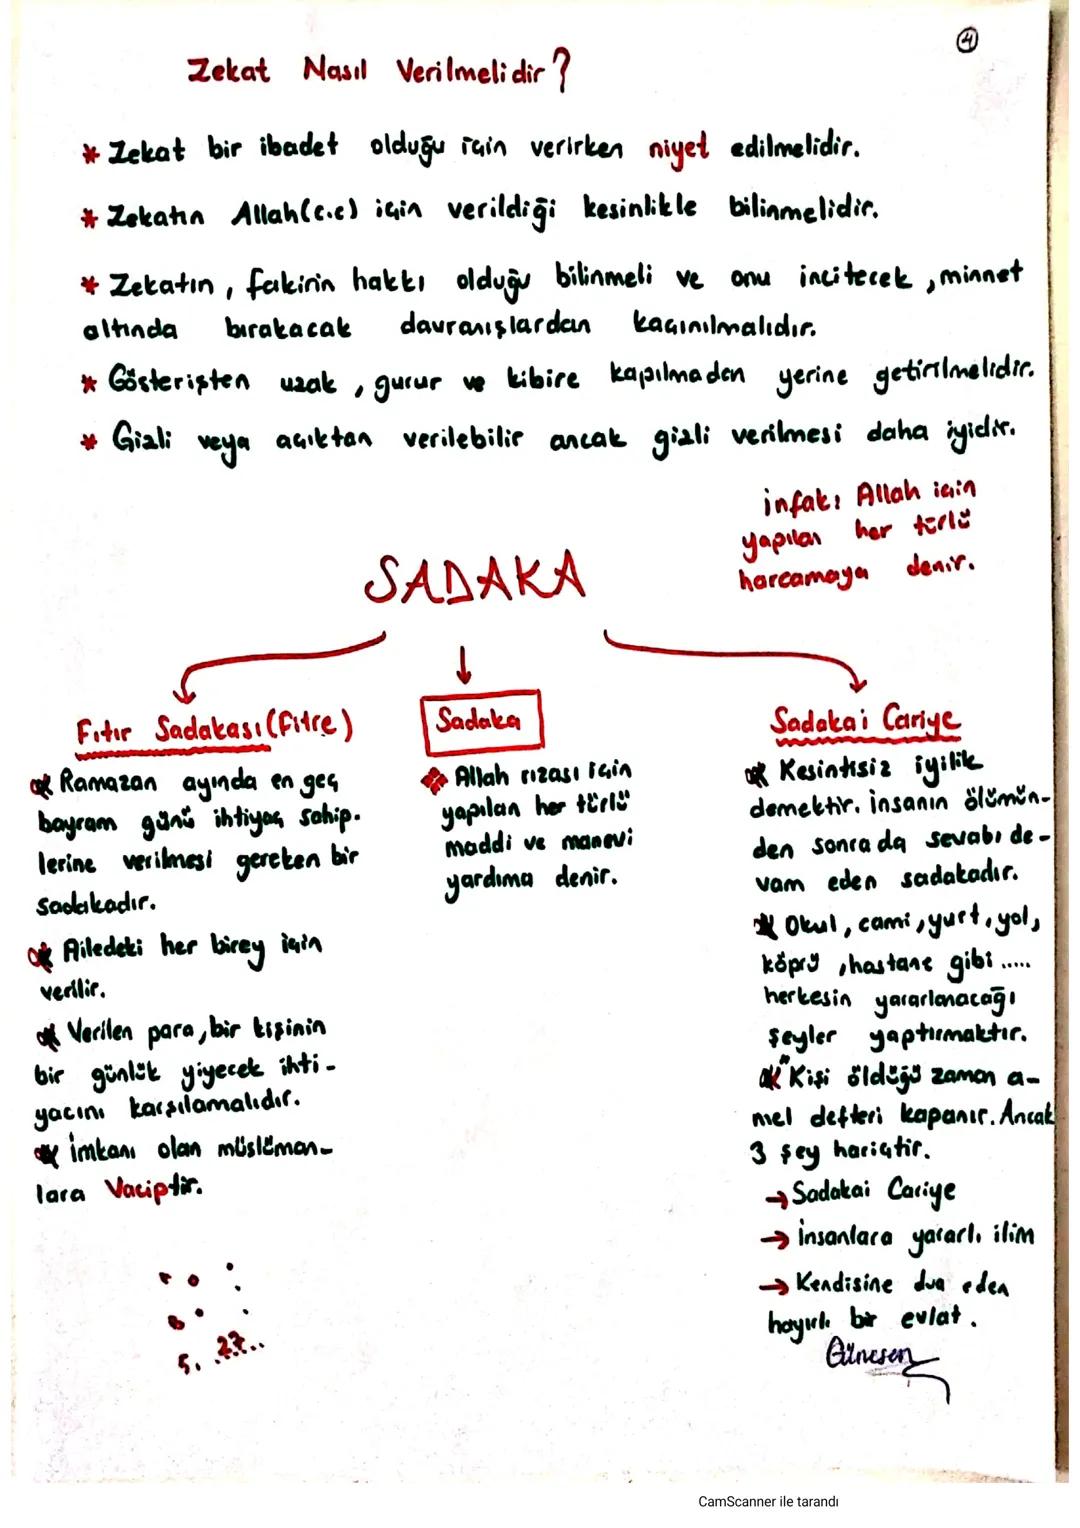 4
Zekat Nasıl Verilmelidir?
* Zekat bir ibadet olduğu için verirken niyet edilmelidir.
* Zekatın Allah(c.c) için verildiği kesinlikle bilinmelidir.
* Zekatın, fakirin hakkı olduğu bilinmeli ve onu incitecek, minnet
altında bırakacak davranışlardan kaçınılmalıdır.
* Gösterişten uzak, gurur ve kibire kapılmadan yerine getirilmelidir.
* Gizli veya açıktan verilebilir ancak gizli verilmesi daha iyidir.
infak: Allah için
yapılan her türlü
harcamaya denir.
SADAKA
Fıtır Sadakası(Fitre)
* Ramazan ayında en geç
bayram günü ihtiyaç sahip-
lerine verilmesi gereken bir
sadakadır.
* Ailedeki her birey için
verilir.
* Verilen para, bir kişinin
bir günlük yiyecek ihti-
yacını karşılamalıdır.
* İmkanı olan müslüman-
lara Vaciptir.
5. 27..
Sadaka
Allah rızası için
yapılan her türlü
maddi ve manevi
yardıma denir.
Sadakai Cariye
* Kesintisiz iyilik
demektir. İnsanın ölümün-
den sonrada sevabı de-
vam eden sadakadır.
* Okul, cami, yurt, yol,
köprü, hastane gibi .....
herkesin yararlanacağı
şeyler yaptırmaktır.
* "Kişi öldüğü zaman a-
mel defteri kapanır. Ancak
3 şey hariçtir.
→ Sadakai Cariye
→ İnsanlara yararlı ilim
→ Kendisine dua eden
hayırlı bir evlat.
CamScanner ile tarandı